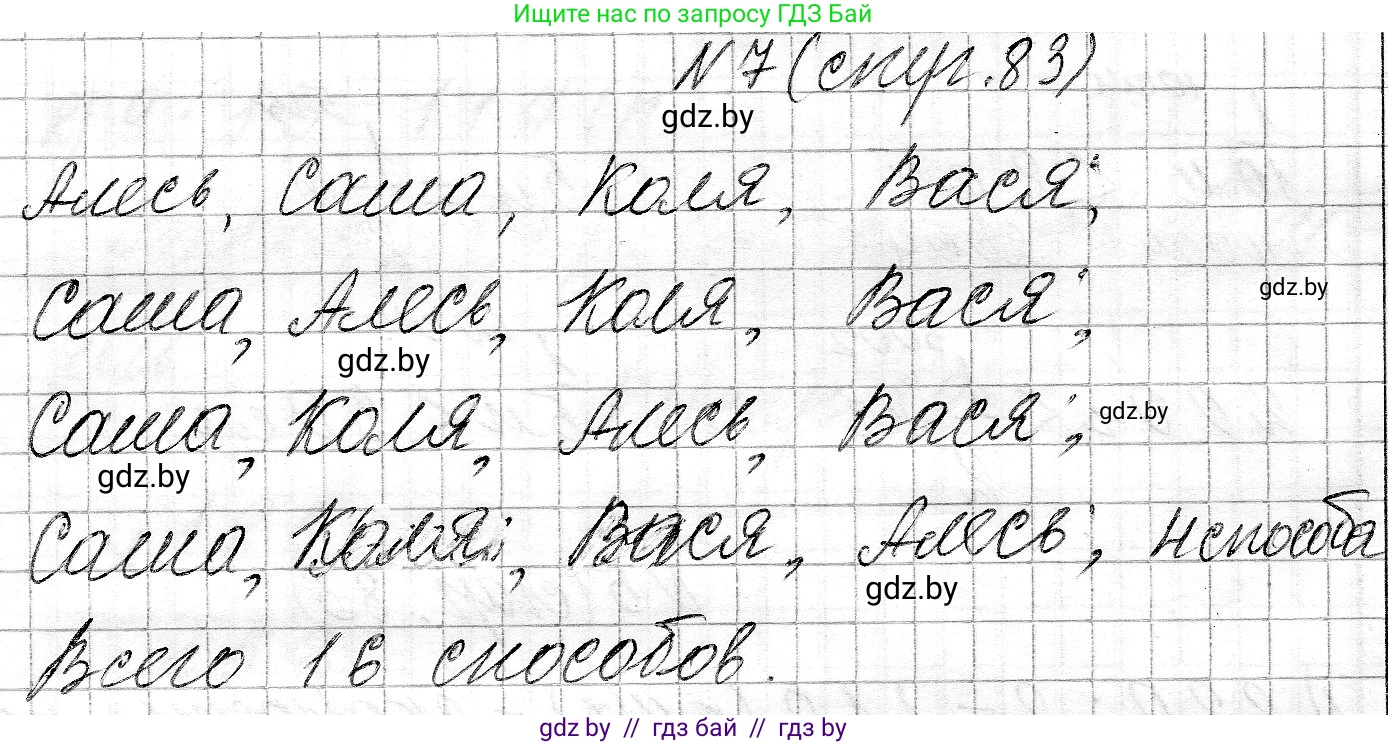 Ищите нас по запросу ГДЗ Бай
N7 (стр. 83)
gdz.by
Алесь, Саша, Коля, Вася;
Саша, Алесь, Коля, Вася;
gdz.by
gdz.by
Саша, Коля, Алесь, Вася;
gdz.by
gdz.by
Саша, Коля, Вася, Алесь; 4 способа
gdz.by
Всего 16 способов.
gdz.by // гдз бай // гдз by